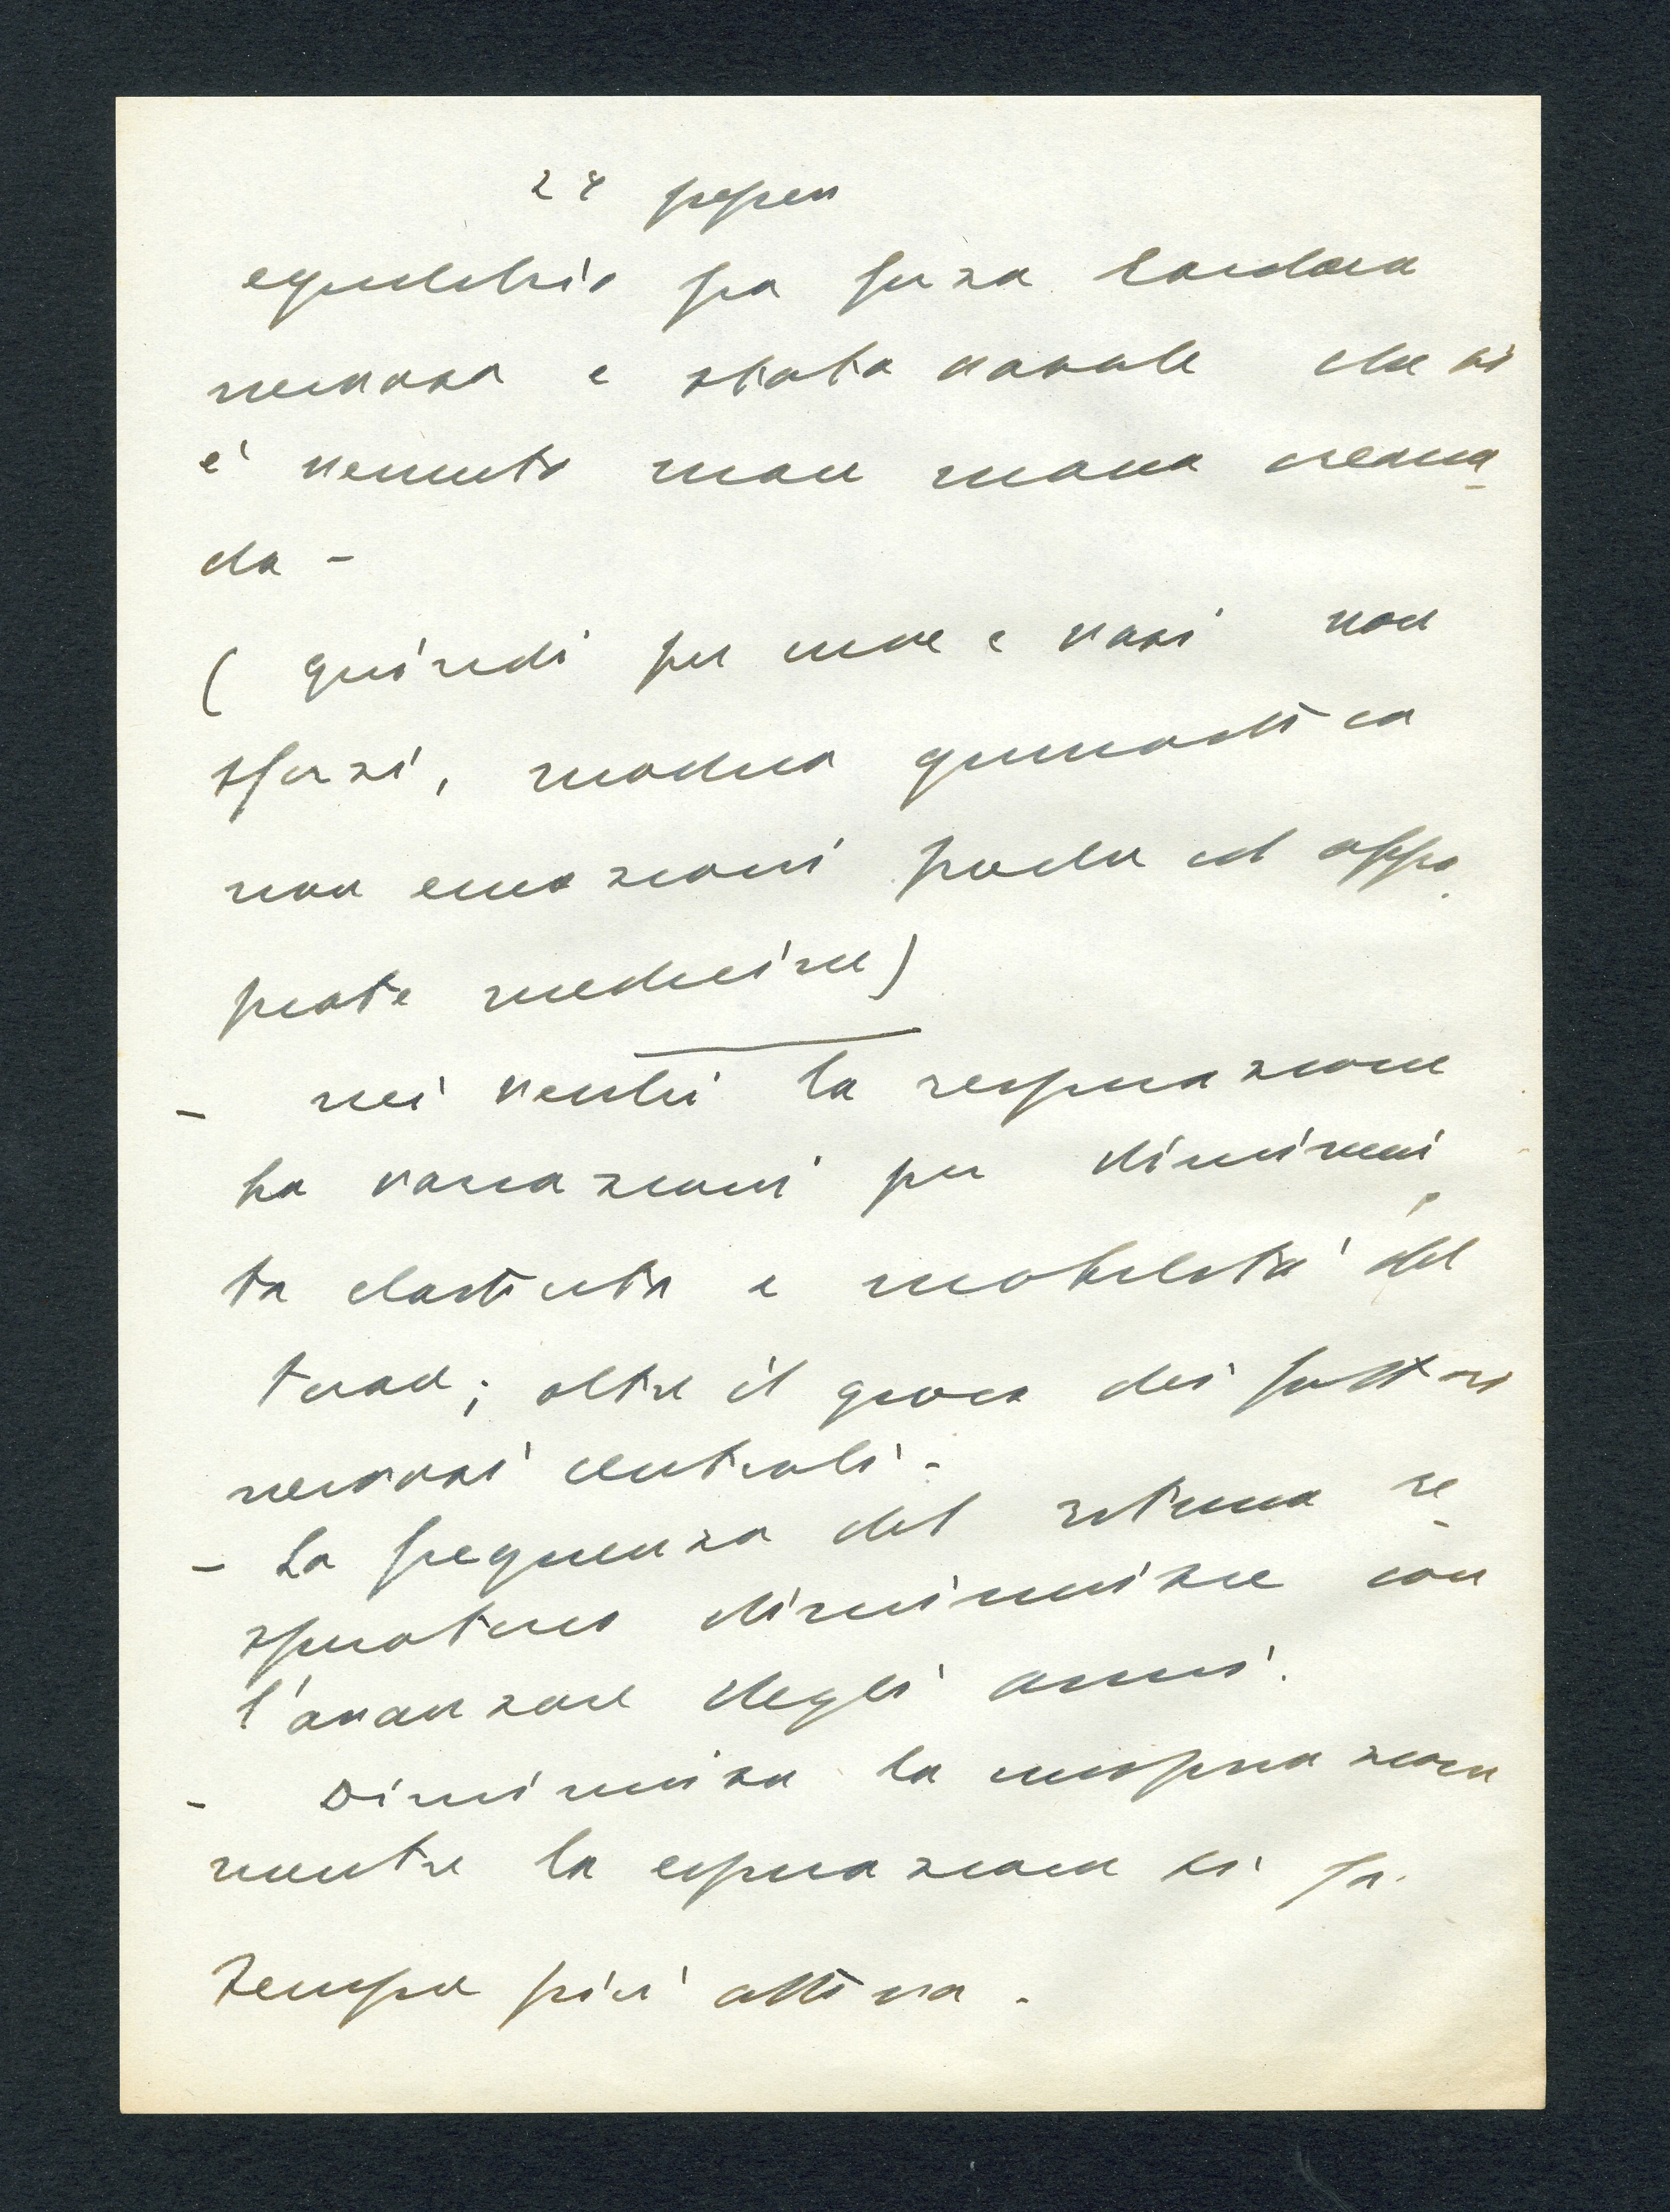 24
equilibrio fra forza cardiaca
nervosa e stato vasale che si
è venuto man mano crean
do -
( quindi per cuore e vasi non
sforzi, modica ginnastica
non emozioni poche ed appro
priate medicine)
- nei vecchi la respirazione
ha variazioni per diminui
ta elasticità e mobilità del
torace; oltre il gioco dei fattori
nervosi centrali -
- La frequenza del ritmo re
spiratorio diminuisce con
l'avanzare degli anni.
- Diminuisce la inspirazione
mentre la espirazione si fa
sempre più attiva -